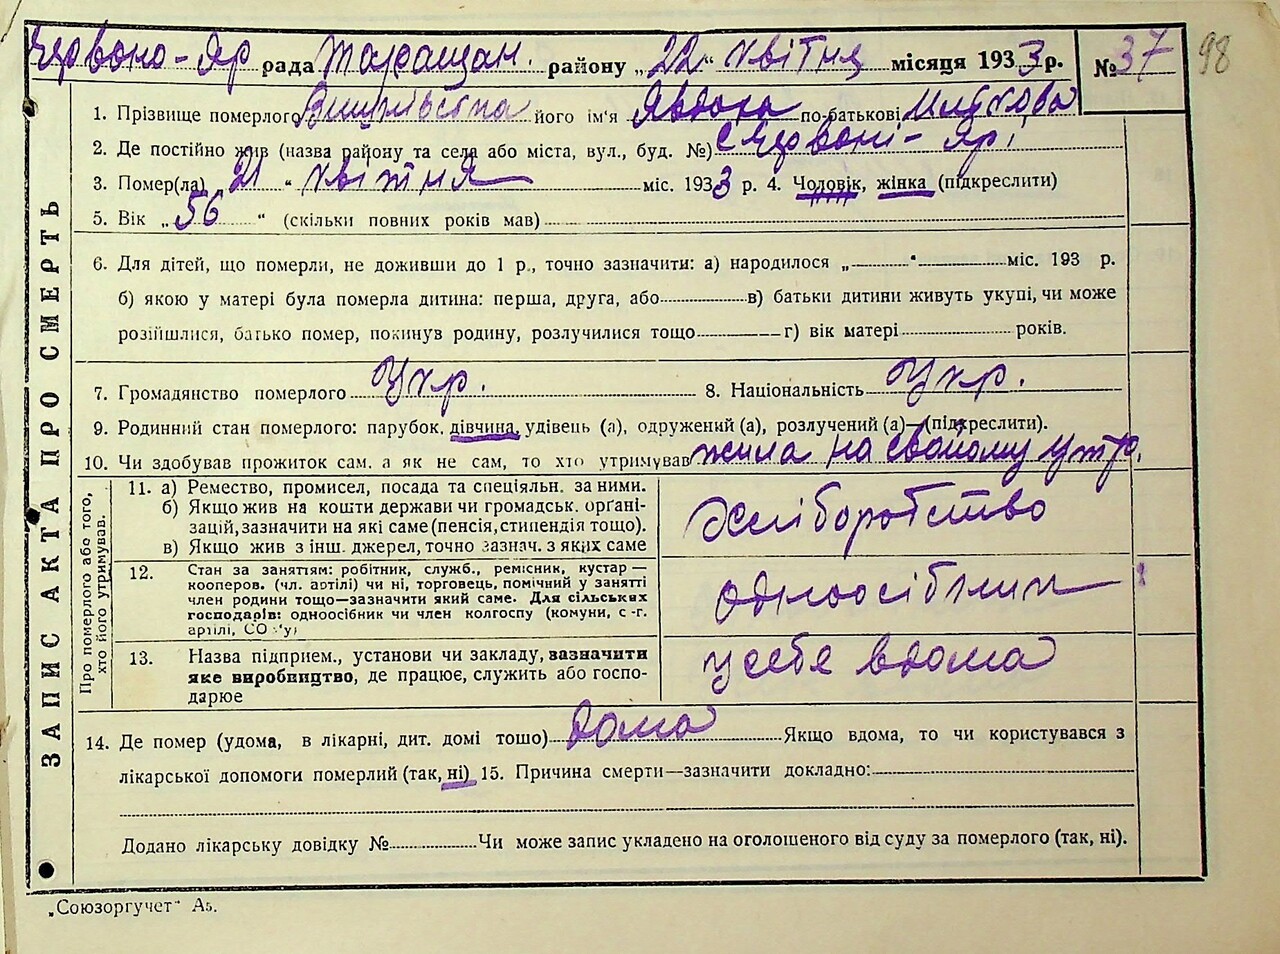 Червоно-Яр рада Таращан. району „22“ квітня місяця 1933 р. № 37 98
1. Прізвище померлого його ім'я Явдоха по-батькові
2. Де постійно жив (назва району та села або міста, вул., буд. №) с Червоні-Ярі
3. Помер(ла) „21“ квітня міс. 1933 р. 4. Чоловік, жінка (підкреслити)
5. Вік „56“ (скільки повних років мав)
6. Для дітей, що померли, не доживши до 1 р., точно зазначити: а) народилося „ “ міс. 193 р.
б) якою у матері була померла дитина: перша, друга, або в) батьки дитини живуть укупі, чи може
розійшлися, батько помер, покинув родину, розлучилися тощо г) вік матері років.
7. Громадянство померлого Укр. 8. Національність Укр.
9. Родинний стан померлого: парубок, дівчина, удівець (а), одружений (а), розлучений (а)—(підкреслити).
10. Чи здобував прожиток сам, а як не сам, то хто утримував жила на свойому утр.
ЗАПИС АКТА ПРО СМЕРТЬ
Про померлого або того, хто його утримував.
11. а) Ремество, промисел, посада та спеціяльн. за ними.
б) Якщо жив на кошти держави чи громадськ. орґані-
зацій, зазначити на які саме (пенсія, стипендія тощо).
в) Якщо жив з інш. джерел, точно зазнач. з яких саме
хліборобство
12. Стан за заняттям: робітник, служб., ремісник, кустар—
кооперов. (чл. артілі) чи ні, торговець, помічний у занятті
член родини тощо—зазначити який саме. Для сільських
господарів: одноосібник чи член колгоспу (комуни, с.-г.
артілі, СОЗ'у)
13. Назва підприєм., установи чи закладу, зазначити
яке виробництво, де працює, служить або госпо-
дарює
у себе вдома
14. Де помер (удома, в лікарні, дит. домі тощо) дома Якщо вдома, то чи користувався з
лікарської допомоги померлий (так, ні) 15. Причина смерти—зазначити докладно:
Додано лікарську довідку № Чи може запис укладено на оголошеного від суду за померлого (так, ні).
„Союзоргучет“ А5.